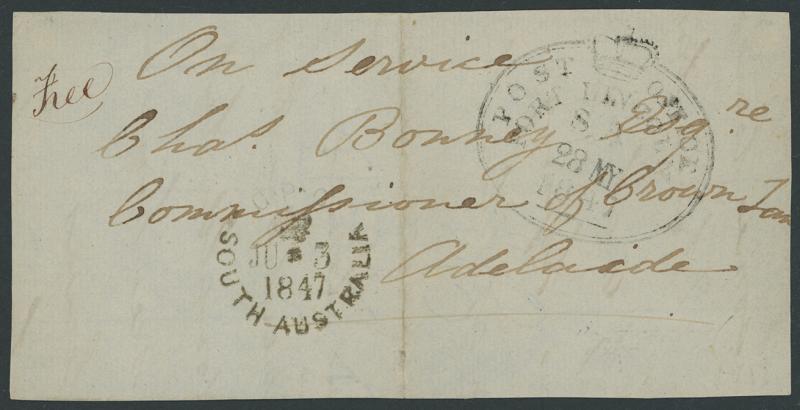 On Service
Free
Chas. Bonney Esqre
Commissioner of Crown Lan
Adelaide
POST OFFICE
PORT LINCOLN
S A
28 MY
1847
G.P.O.
JU 3
1847
SOUTH AUSTRALIA